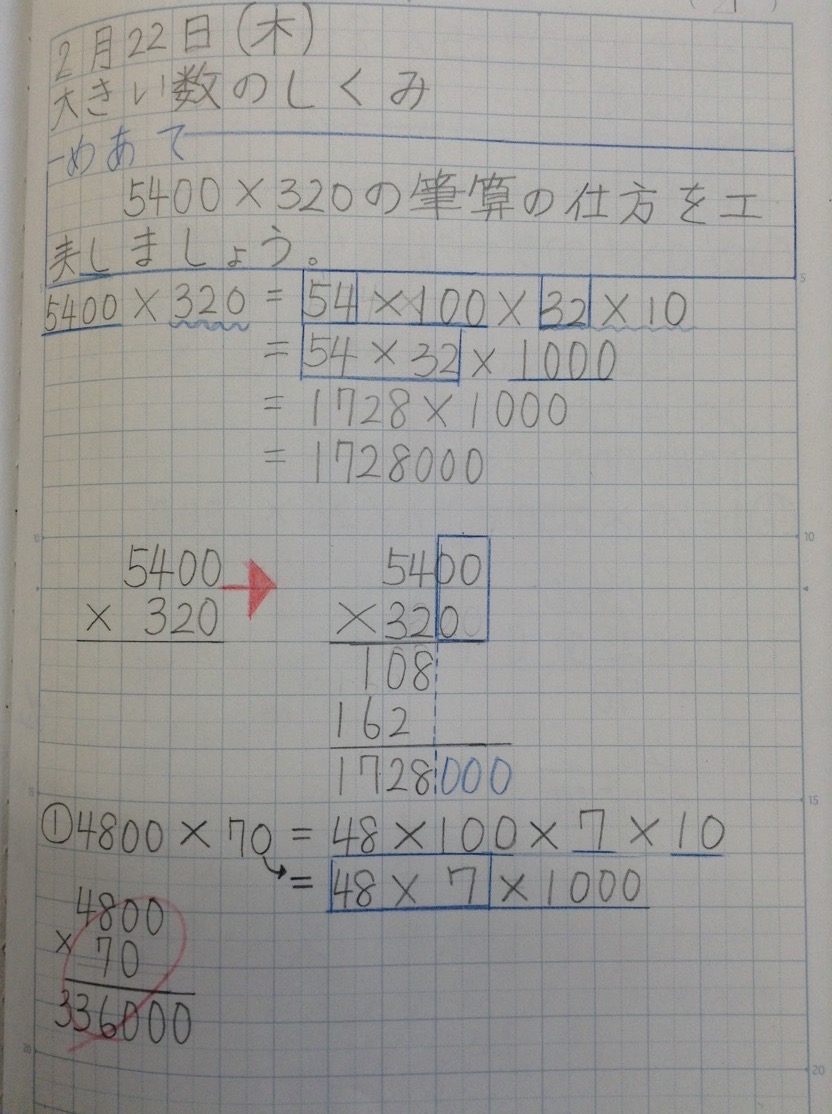 2月22日(木)
大きい数のしくみ
めあて
5400×320の筆算の仕方を工
夫しましょう。
5400×320=54×100×32×10
=54×32×1000
=1728×1000
=1728000
5400
×320
5400
×320
108
162
1728000
①4800×70=48×100×7×10
=48×7×1000
4800
×70
336000
5
10
15
20
10